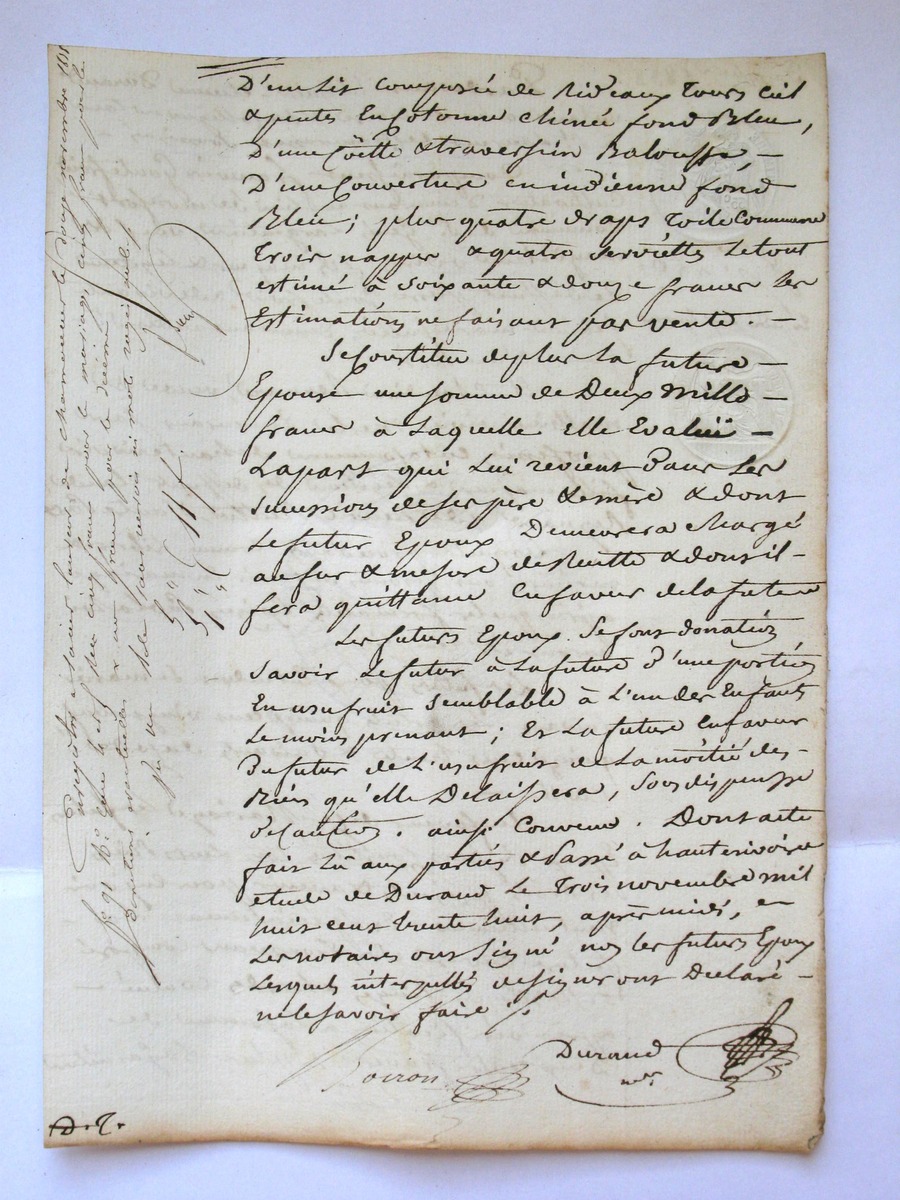 D'un Lit composée de rideaux tours ciel
& pentes en cotonne chinée fond Bleu,
D'une Coëtte & traversin Balouffe, —
D'une Couverture en indienne fond
Bleu; plus quatre draps toile Commune
trois nappes & quatre serviettes Le tout
estimé à soixante & douze francs les
Estimations ne faisant pas vente. —
Se Constitue de plus la future —
Epouse une somme de Deux mille —
francs à Laquelle elle Evalue —
La part qui Lui revient Dans Les
successions de ses père & mère & dont
Le futur Epoux Demeurera Chargé
au fur & mesure de Recette & dont il —
fera quittance En faveur de la future
Les futurs Epoux Se font donation
Savoir Le futur à La future D'une portion
En usufruit semblable à L'un des Enfants
Le moins prenant; Et La future En faveur
Du futur de L'usufruit de La moitié des —
Biens qu'elle Delaissera, Sous dispense
De caution. ainsi Convenu. Dont acte
fait Lû aux parties & Passé à hauterivoire
etude de Durand Le trois novembre mil
huit cent trente huit, après midi, &
Les notaires ont signé non les futurs Epoux
Lesquels interpellés de signer ont Declaré —
ne le savoir faire ./.
Boiron
Durand
nre
D. T.
Enregistré à Saint Laurent de Chamousset le douze novembre 183
fo 91 Ro Case 1e et Sees cinq francs pour le mariage, cinq francs pour les
donations mutuelles & un franc pour le dixième
Lu un Role sans renvoi ni mot rayé nul ./.
5" "
5" "
11 f.